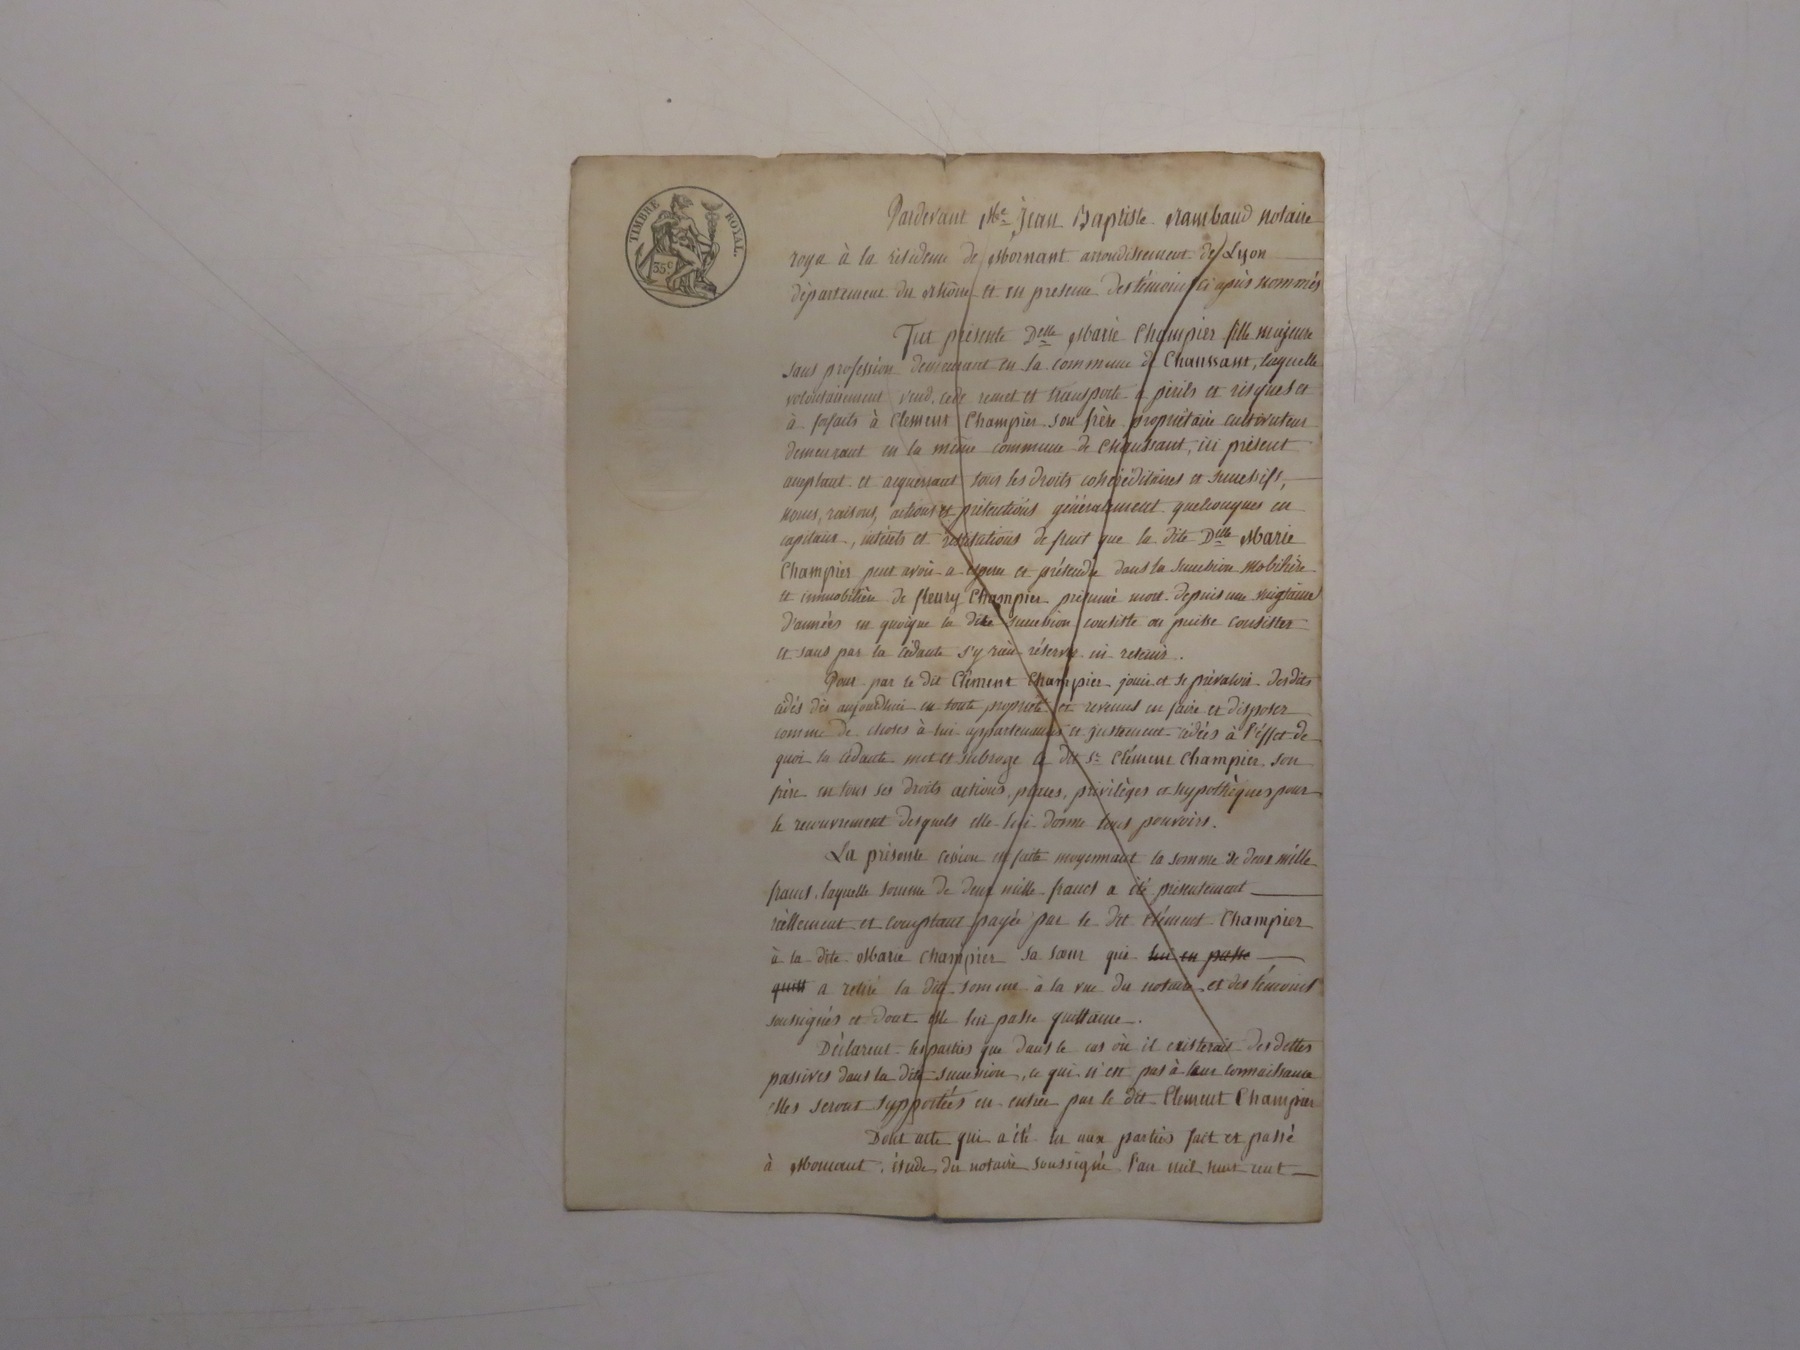 TIMBRE ROYAL.
35c
Pardevant Me Jean Baptiste Rambaud notaire
roya à la résidence de Mornant arrondissement de Lyon
département du Rhône et en présence des témoins ci après nommés
Fut présente Delle Marie Champier fille majeure
sans profession demeurant en la commune de Chaussant, laquelle
volontairement vend, cède remet et transporte a périls et risques et
à forfaits à Clément Champier son frère propriétaire cultivateur
demeurant en la même commune de Chaussant, ici présent
acceptant et acquérant tous les droits cohéréditaires et successifs,
noms, raisons, actions et prétentions généralement quelconques en
capitaux, intérêts et restitutions de fruit que la dite Delle Marie
Champier peut avoir a espérer et prétendre dans la succession mobilière
et immobilière de fleury Champier présumé mort depuis une vingtaine
d'années en quoique la dite succession consiste ou puisse consister
et sans par la cédante s'y rien réserver ni retenir.
Pour par le dit Clément Champier jouir et se prévaloir des dits
cédés dès aujourdhui en toute propriété et revenus en faire et disposer
comme de choses à lui appartenantes et justement cédées à l'éffet de
quoi la cédante met et subroge le dit Sr Clément Champier son
frère en tous ses droits actions, places, privilèges et hypothèques pour
le recouvrement desquels elle lui donne tous pouvoirs.
La présente cession est faite moyennant la somme de deux mille
francs, laquelle somme de deux mille francs a été présentement
réellement et comptant payée par le dit Clément Champier
à la dite Marie Champier sa sœur qui lui en passe
quitt a retiré la dite somme à la vue du notaire et des témoins
soussignés et dont elle lui passe quittance.
Déclarent les parties que dans le cas où il existerait des dettes
passives dans la dite succession, ce qui n'est pas à leur connaissance
elles seront supportées en entier par le dit Clément Champier
Dont acte qui a été lu aux parties fait et passé
à Mornant, étude du notaire soussigné l'an mil huit cent